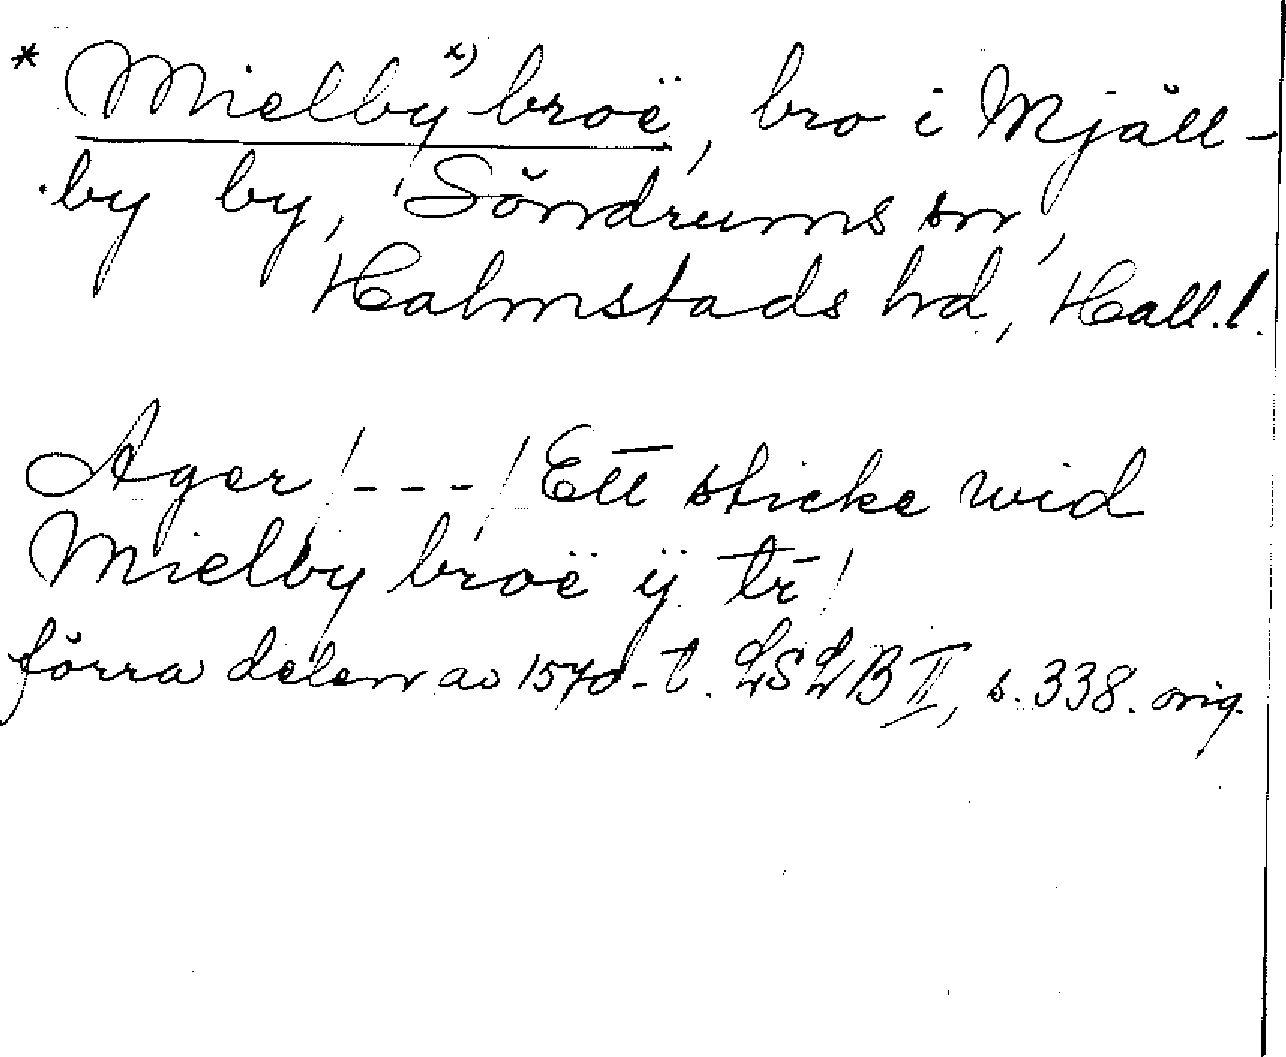 * Mielby x) broë, bro i Mjäll-
by by, Söndrums sn,
Halmstads hd, Hall.l.
Ager /---/ Ett sticke wid
Mielby broë ÿ tr̄ /
förra delen av 1570-t. LSLB II, s. 338. orig.